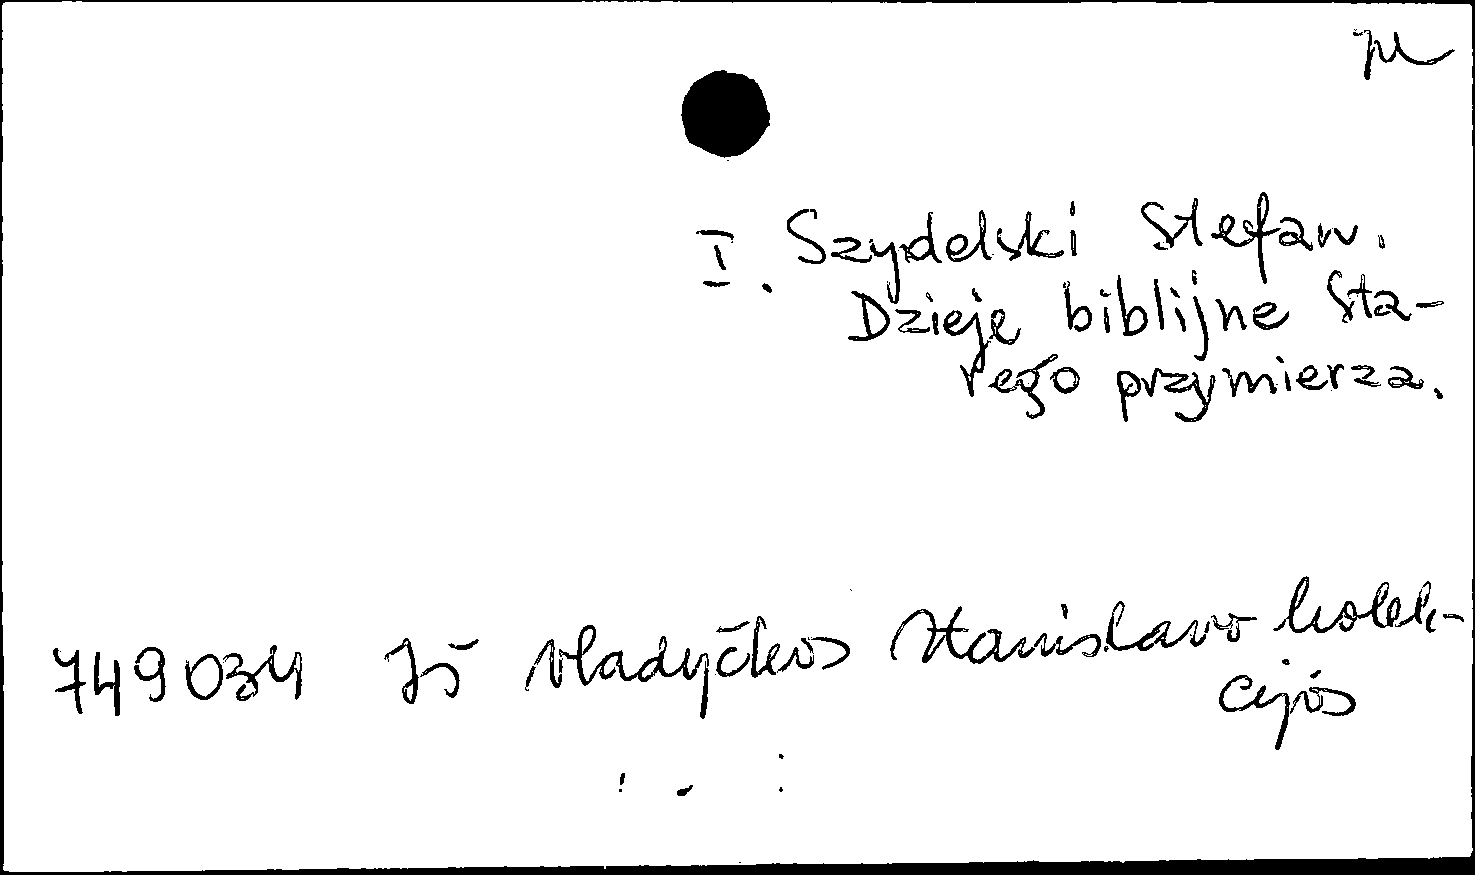 I. Szydelski Stefan.
Dzieje biblijne Sta-
rego przymierza.
749034 Iš vladyčkos Stanislavo kolek-
cijos